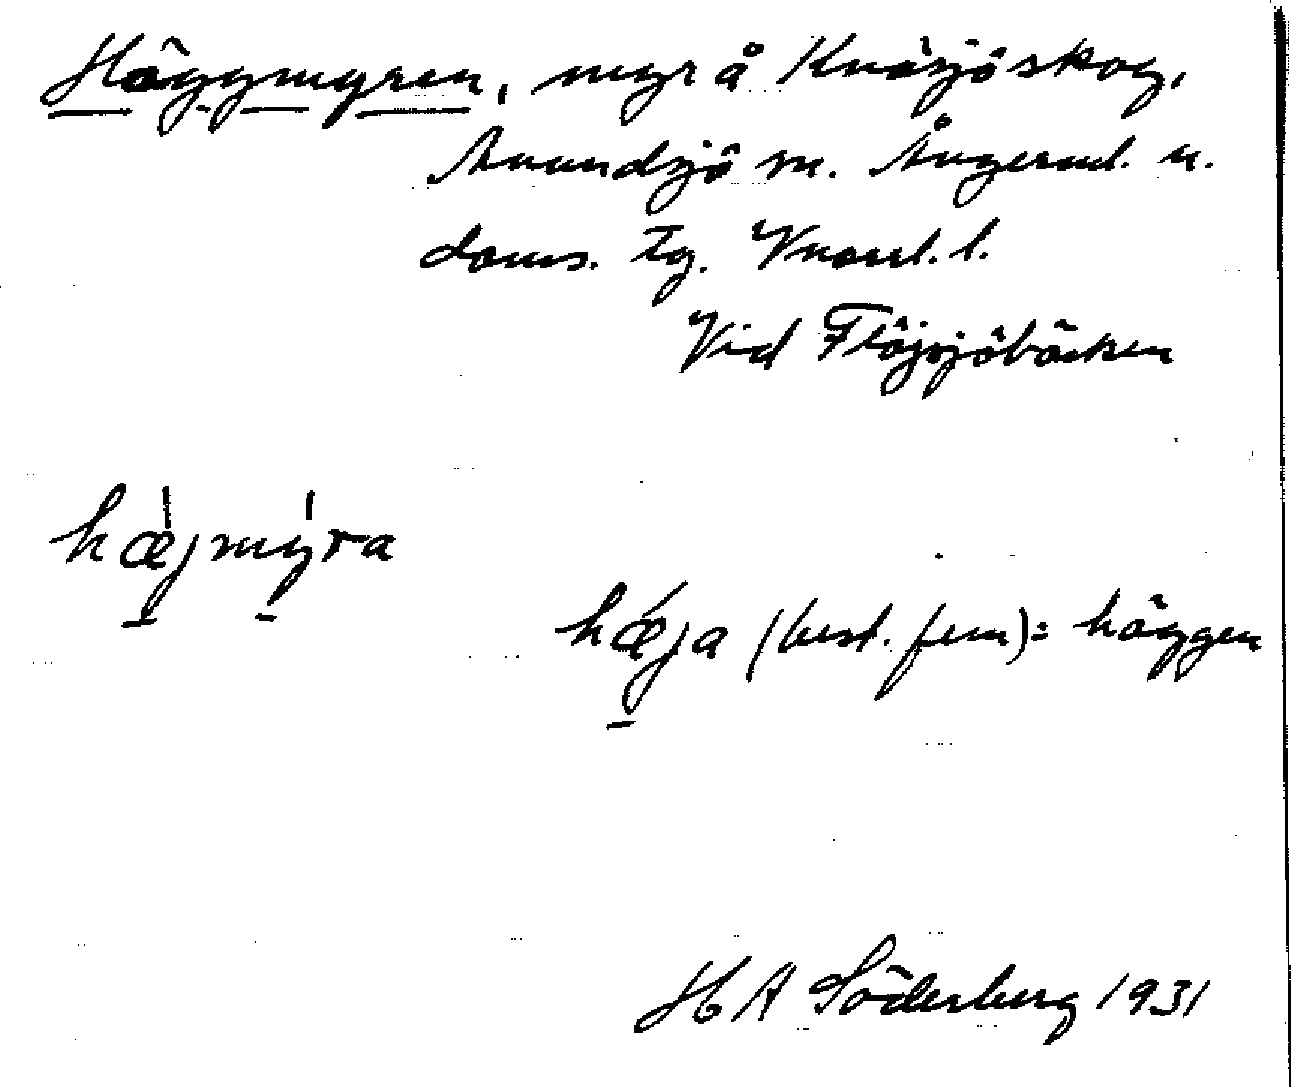 Häggmyren, myr å Knäsjöskog,
Anundsjö sn. Ångerml. n.
doms. Tg. Vnorrl. l.
Vid Flöjsjöbäcken
hæjmýra
hǽja (best. fem) = häggen
H A Söderberg 1931